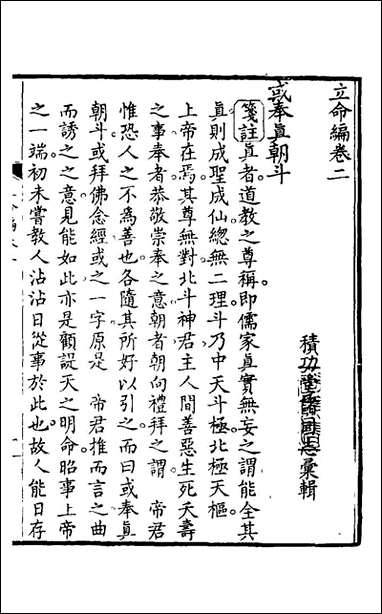 立命編卷二
積功堂彙輯
或奉真朝斗
箋註真者道教之尊稱即儒家真實無妄之謂能全其
真則成聖成仙總無二理斗乃中天斗極北極天樞
上帝在焉其尊無對北斗神君主人間善惡生死夭壽
之事奉者恭敬崇奉之意朝者朝向禮拜之謂 帝君
惟恐人之不為善也各隨其所好以引之而曰或奉真
朝斗或拜佛念經或之一字原是 帝君推而言之曲
而誘之之意見能如此亦是顧諟天之明命昭事上帝
之一端初未嘗教人沾沾日從事於此也故人能日存